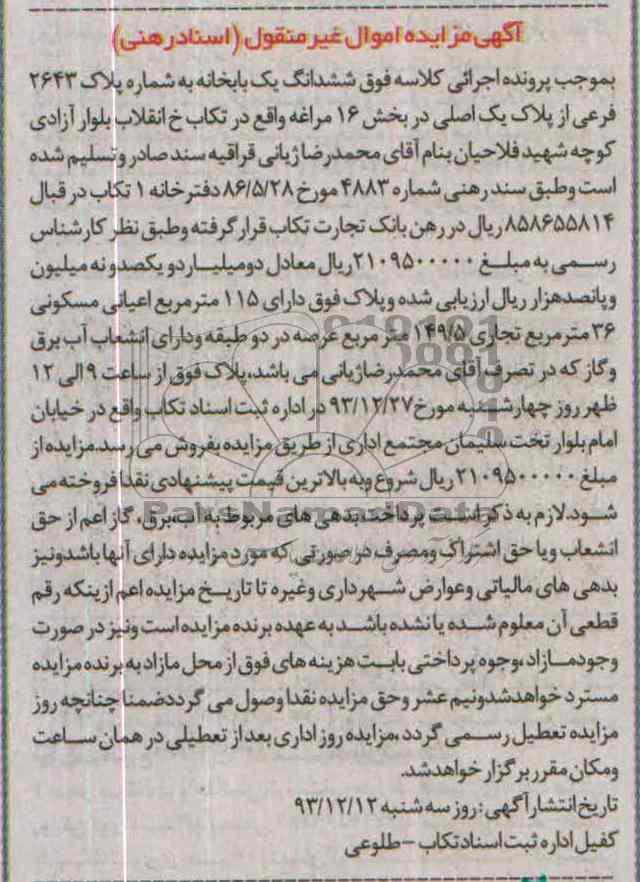 آگهی مزایده اموال غیرمنقول (اسنادرهنی)
بموجب پرونده اجرائی کلاسه فوق ششدانگ یک بابخانه به شماره پلاک ۲۶۴۳
فرعی از پلاک یک اصلی در بخش ۱۶ مراغه واقع در تکاب خ انقلاب بلوار آزادی
کوچه شهید فلاحیان بنام آقای محمدرضا ژیانی قراقیه سند صادر وتسلیم شده
است وطبق سند رهنی شماره ۴۸۸۳ مورخ ۸۶/۵/۲۸ دفترخانه ۱ تکاب در قبال
۸۵۸۶۵۵۸۱۴ ریال در رهن بانک تجارت تکاب قرار گرفته وطبق نظر کارشناس
رسمی به مبلغ ۲۱۰۹۵۰۰۰۰۰ ریال معادل دومیلیاردو یکصدو نه میلیون
وپانصدهزار ریال ارزیابی شده وپلاک فوق دارای ۱۱۵ مترمربع اعیانی مسکونی
۳۶ مترمربع تجاری ۱۴۹/۵ متر مربع عرصه در دو طبقه ودارای انشعاب آب برق
وگاز که در تصرف آقای محمدرضاژیانی می باشد،پلاک فوق از ساعت ۹ الی ۱۲
ظهر روز چهارشنبه مورخ ۹۳/۱۲/۲۷ در اداره ثبت اسناد تکاب واقع در خیابان
امام بلوار تخت سلیمان مجتمع اداری از طریق مزایده بفروش می رسد.مزایده از
مبلغ ۲۱۰۹۵۰۰۰۰۰ ریال شروع وبه بالاترین قیمت پیشنهادی نقدا فروخته می
شود.لازم به ذکر است پرداخت بدهی های مربوط به آب،برق، گاز اعم از حق
انشعاب ویا حق اشتراک ومصرف در صورتی که مورد مزایده دارای آنها باشدونیز
بدهی های مالیاتی وعوارض شهرداری وغیره تا تاریخ مزایده اعم ازینکه رقم
قطعی آن معلوم شده یا نشده باشد به عهده برنده مزایده است ونیز در صورت
وجودمازاد ،وجوه پرداختی بابت هزینه های فوق از محل مازاد به برنده مزایده
مسترد خواهدشدونیم عشر وحق مزایده نقدا وصول می گرددضمنا چنانچه روز
مزایده تعطیل رسمی گردد ،مزایده روز اداری بعد از تعطیلی در همان ساعت
ومکان مقرر برگزار خواهدشد.
تاریخ انتشار آگهی : روز سه شنبه ۹۳/۱۲/۱۲
کفیل اداره ثبت اسنادتکاب – طلوعی
ParsNamadData